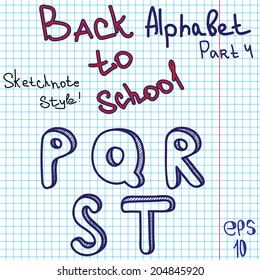 Back Alphabet
to Part 4
Sketchnote School
Style!
P Q R
S T
eps
10
shutterstock.com · 204845920